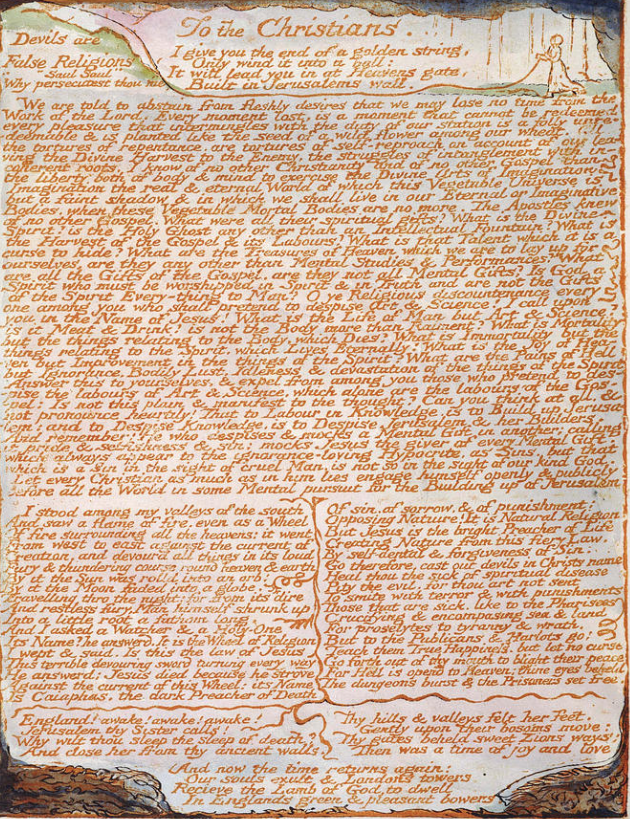 To the Christians.
Devils are
False Religions
"Saul Saul"
"Why persecutest thou me."
I give you the end of a golden string,
Only wind it into a ball:
It will lead you in at Heavens gate,
Built in Jerusalems wall.
We are told to abstain from fleshly desires that we may lose no time from the
Work of the Lord. Every moment lost, is a moment that cannot be redeemed
every pleasure that intermingles with the duty of our station is a folly
unredeemable & is planted like the seed of a wild flower among our wheat. All
the tortures of repentance, are tortures of self-reproach on account of our leav-
ing the Divine Harvest to the Enemy, the struggles of entanglement with
incoherent roots. I know of no other Christianity and of no other Gospel than
the liberty both of body & mind to exercise the Divine Arts of Imagination.
Imagination the real & eternal World of which this Vegetable Universe is
but a faint shadow & in which we shall live in our Eternal or Imaginative
Bodies, when these Vegetable Mortal Bodies are no more. The Apostles knew
of no other Gospel. What were all their spiritual gifts? What is the Divine
Spirit? is the Holy Ghost any other than an Intellectual Fountain? What is
the Harvest of the Gospel & its Labours? What is that Talent which it is a
curse to hide? What are the Treasures of Heaven which we are to lay up for
ourselves, are they any other than Mental Studies & Performances? What
are all the Gifts of the Gospel, are they not all Mental Gifts? Is God a
Spirit who must be worshipped in Spirit & in Truth and are not the Gifts
of the Spirit Every-thing to Man? O ye Religious discountenance every
one among you who shall pretend to despise Art & Science! I call upon
you in the Name of Jesus! What is the Life of Man but Art & Science?
is it Meat & Drink? is not the Body more than Raiment? What is Mortality
but the things relating to the Body, which Dies? What is Immortality but the
things relating to the Spirit, which Lives Eternally! What is the Joy of Hea-
ven but Improvement in the things of the Spirit? What are the Pains of Hell
but Ignorance, Bodily Lust, Idleness & devastation of the things of the Spirit
Answer this to yourselves, & expel from among you those who pretend to des-
pise the labours of Art & Science, which alone are the labours of the Gos-
pel: Is not this plain & manifest to the thought? Can you think at all &
not pronounce heartily! That to Labour in Knowledge, is to Build up Jerusa-
lem: and to Despise Knowledge, is to Despise Jerusalem & her Builders.
And remember: He who despises & mocks a Mental Gift in another; calling
it pride & selfishness & sin; mocks Jesus the giver of every Mental Gift,
which always appear to the ignorance-loving Hypocrite, as Sins. but that
which is a Sin in the sight of cruel Man, is not so in the sight of our kind God.
Let every Christian as much as in him lies engage himself openly & publicly
before all the World in some Mental pursuit for the Building up of Jerusalem
I stood among my valleys of the south
And saw a flame of fire, even as a Wheel
Of fire surrounding all the heavens: it went
From west to east against the current of
Creation and devourd all things in its loud
Fury & thundering course round heaven & earth
By it the Sun was rolld into an orb:
By it the Moon faded into a globe,
Travelling thro the night: for from its dire
And restless fury, Man himself shrunk up
Into a little root a fathom long.
And I asked a Watcher & a Holy-One
Its Name? he answerd. It is the Wheel of Religion
I wept & said. Is this the law of Jesus
This terrible devouring sword turning every way
He answerd; Jesus died because he strove
Against the current of this Wheel: its Name
Is Caiaphas, the dark Preacher of Death
Of sin, of sorrow, & of punishment;
Opposing Nature! It is Natural Religion
But Jesus is the bright Preacher of Life
Creating Nature from this fiery Law,
By self-denial & forgiveness of Sin.
Go therefore, cast out devils in Christs name
Heal thou the sick of spiritual disease
Pity the evil, for thou art not sent
To smite with terror & with punishments
Those that are sick, like to the Pharisees
Crucifying & encompasing sea & land
For proselytes to tyranny & wrath.
But to the Publicans & Harlots go!
Teach them True Happiness, but let no curse
Go forth out of thy mouth to blight their peace
For Hell is opend to Heaven; thine eyes beheld
The dungeons burst & the Prisoners set free.
England! awake! awake! awake!
Jerusalem thy Sister calls!
Why wilt thou sleep the sleep of death?
And close her from thy ancient walls.
Thy hills & valleys felt her feet,
Gently upon their bosoms move:
Thy gates beheld sweet Zions ways;
Then was a time of joy and love
And now the time returns again:
Our souls exult & Londons towers
Recieve the Lamb of God to dwell
In Englands green & pleasant bowers